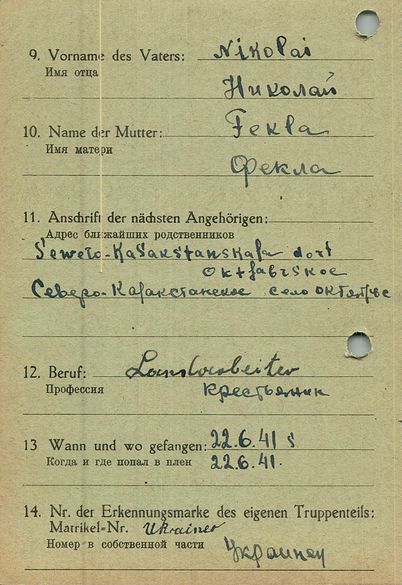 9. Vorname des Vaters: Nikolai
Имя отца
Николай
10. Name der Mutter: Fekla
Имя матери
Фекла
11. Anschrift der nächsten Angehörigen:
Адрес ближайших родственников
Sewero-Kasakstanskaja dorf
Oktjabrskoe
Северо-Казакстанское село октябрьс
12. Beruf: Landarbeiter
Профессия крестьянин
13 Wann und wo gefangen: 22.6.41 s
Когда и где попал в плен 22.6.41.
14. Nr. der Erkennungsmarke des eigenen Truppenteils:
Matrikel-Nr. Ukrainer
Номер в собственной части Украинец